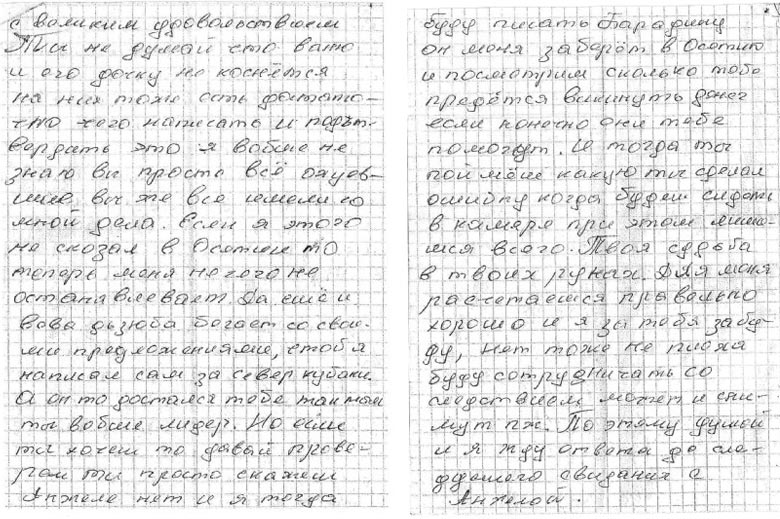 с великим удовольствием
Ты не думай что вато
и его дочку не коснётся
на них тоже есть достато-
чно чего написать и подът-
вердать это я вобше не
знаю вы просто всё охуев-
шие вы же все имели со
мной дела. Если я этого
не сказал в Осетии то
теперь меня нечого не
останавлевает. Да ешё и
вова дзюба богает со свои-
ми предложениями, чтоб я
написал сам за север кубани.
А он то достался тебе так как
ты вобше лидер. Но если
ты хочеш то давай прове-
рем ты просто скажеш
Анжеле нет и я тогда
буду писать Парадину
он меня заборёт в Осетию
и посмотрим сколько тебе
предётся выкинуть денег
если конечно они тебе
помогут. И тогда ты
поймёш какую ты сделал
ошибку когда будеш сидеть
в камере при этом лиши-
шся всего. Твоя судьба
в твоих руках. Для меня
расчетаешся правельно
хорошо и я за тебя забу-
ду, нет тоже не плоха
буду сотрудничать со
следствием может и сни-
мут пж. По этому думай
и я жду ответа до сле-
ддющего свидания с
Анжелой.